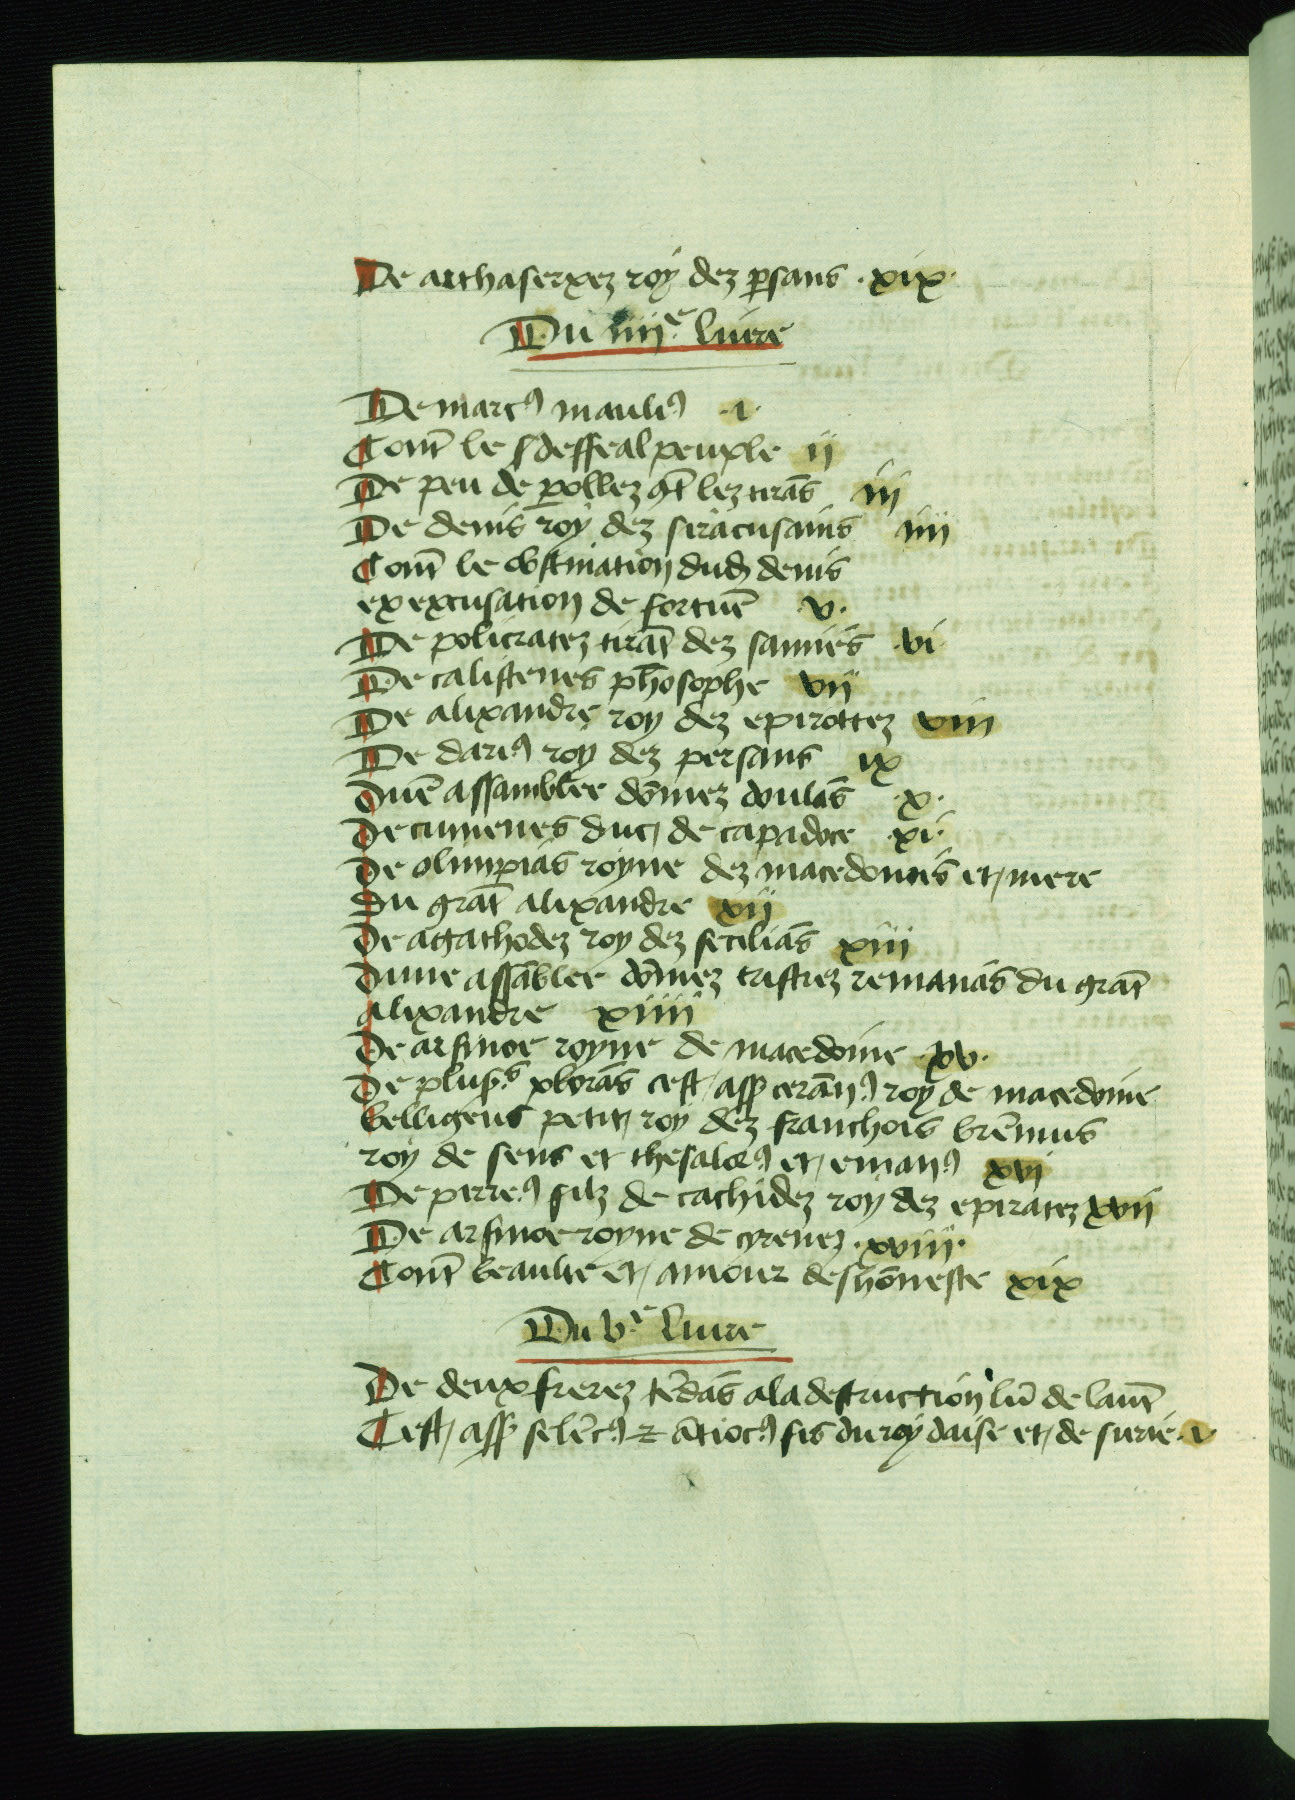 De arthaserxez roy dez ꝑsans · xix ·
Du iiijᵉ liure
De marcꝰ manliꝰ · i ·
Com̄t le desseal peuple ii
De peu de ꝑollez 9t̄ lez tirās iij
De denis roy dez siracusains iiij
Com̄t le obstination dud denis
ex excusation de fortun̄e · v ·
De policratez tirāt dez samiēs · vi
De calistenes ph̄osophe vij
De alixandre roy dez epirottez viij
De dariꝰ roy dez persans ix
Dun̄e assamblee dōmez doulās · x ·
De eumenes duc de capadoce · xi ·
De olimpias royne dez macedoniēs et mere
du grāt alixandre xij
De agathodez roy dez seciliās xiij
Dune assāblee dōmez tristrez remanās du grāt
alixandre xiiij
De arsinoe royne de macedoine · xv ·
De plusʳˢ plorās cest ass cerānꝰ roy de macedoine
belligeus petit roy dez franchois brēnius
roy de sens et thesalorꝰ et emanꝰ xvj
De pirreꝰ filz de cachidez roy dez epiratez xvij
De arsinoe royne de cyrenez · xviij ·
Com̄t beaulte et amour deshōneste xix
Du vᵉ liure
De deux frerez tēdās a la destruction lū de lautr̄e
Cest ass selēcꝰ ⁊ ātiocꝰ fis du roy daise et de surie · i ·